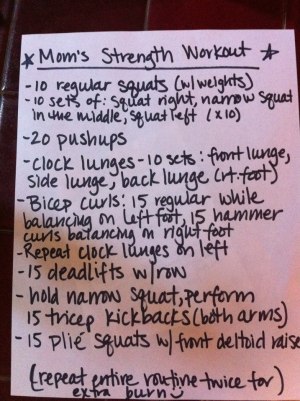 ★ Mom's Strength Workout ★
- 10 regular squats (w/weights)
- 10 sets of: squat right, narrow squat
in the middle, squat left (x10)
- 20 pushups
- Clock lunges - 10 sets: front lunge,
side lunge, back lunge (rt. foot)
- Bicep curls: 15 regular while
balancing on left foot, 15 hammer
curls balancing on right foot
- Repeat clock lunges on left
- 15 deadlifts w/row
- hold narrow squat, perform
15 tricep kickbacks (both arms)
- 15 plié squats w/ front deltoid raise
(repeat entire routine twice for)
extra burn ☺